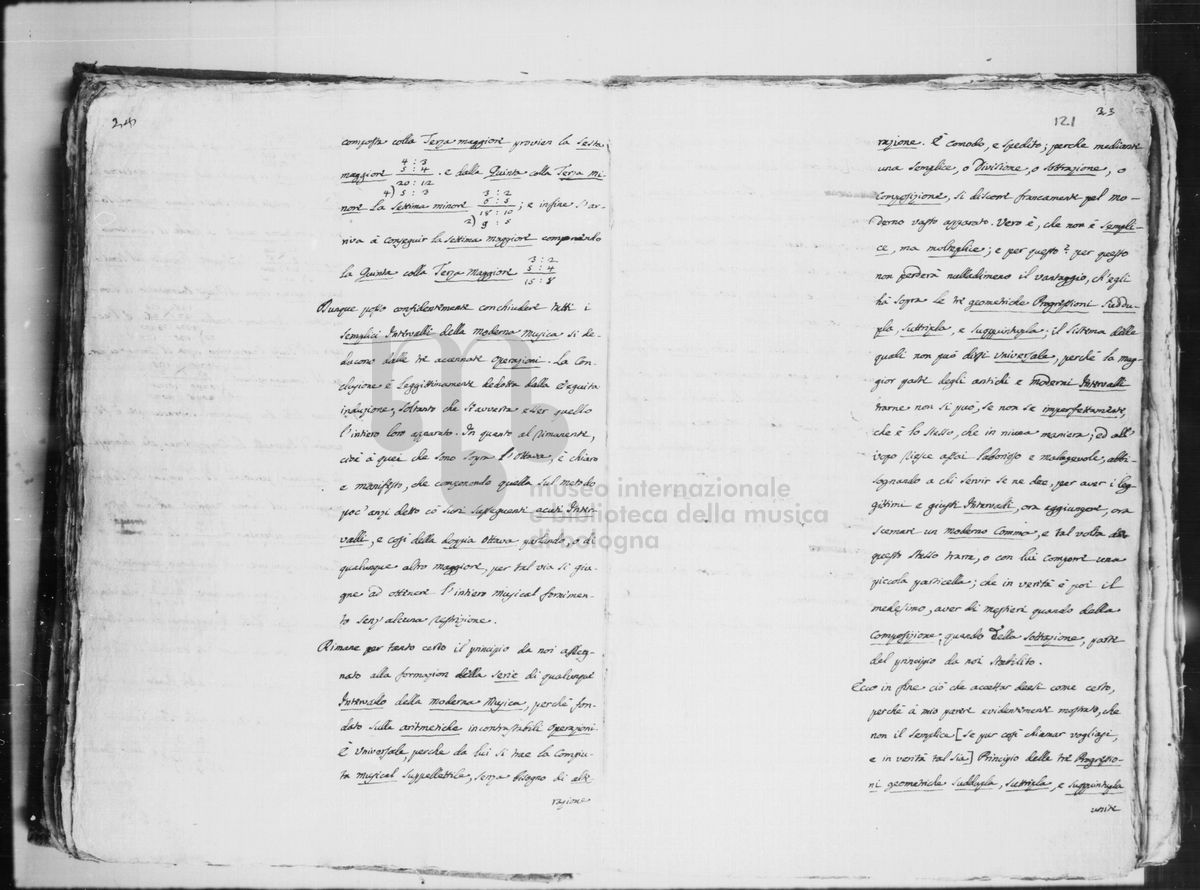 24
composta colla Terza maggiore provien la Sesta
4 : 3
maggiore 5 : 4 . e dalla Quinta colla Terza Mi
20 : 12
4) 5 : 3
3 : 2
nore la Settima minore 6 : 5 ; e infine s'ar-
18 : 10
2) 9 : 5
riva à conseguir la Settima maggiore componendo
3 : 2
la Quinta colla Terza Maggiore 5 : 4
15 : 8
Dunque posso confidentemente conchiudere tutti i
semplici Intervalli della moderna Musica si de-
ducono dalle tre accennate Operazioni. La Con-
clusione è leggittimamente dedotta dalla eseguita
induzione, soltanto che s'avverta esser quello
l'intiero loro apparato. In quanto al rimanente,
cioè à quei che sono sopra l'Ottava, è chiaro
e manifesto, che componendo quella sul metodo
poc'anzi detto cò suoi susseguenti acuti Inter
valli, e così della doppia Ottava parlando, o di
qualunque altro maggiore, per tal via si giu-
gne ad ottenere l'intiero musical fornimen-
to senz'alcuna restrizione.
Rimane per tanto certo il principio da noi asseg-
nato alla formazion della serie di qualunque
Intervallo della moderna Musica, perchè fon-
dato sulla aritmetiche incontrastabili Operazioni.
È Universale, perchè da lui si trae la compiu-
ta musical Suppellettile, senza bisogno di alte
razione
121
23
razione. È comodo, e spedito; perchè mediante
una semplice, o Divisione, o sottrazione, o
Composizione, si discorre francamente pel mo-
derno vasto apparato. Vero è, che non è sempli-
ce, ma molteplice; e per questo? per questo
non perderà nulladimeno il vantaggio, ch'egli
hà sopra le tre geometriche Progressioni Suddu-
pla Suttripla, e Suqquintupla; il sistema delle
quali non può dirsi Universale, perchè la mag
gior parte degli antichi e moderni Intervalli
trarne non si può, se non se imperfettamente,
che è lo stesso, che in niuna maniera; ed all'
uopo riesce assai laborioso e malagevole, abbi-
sognando a chi servir se ne dee, per aver i leg
gittimi e giusti Intervalli, ora aggiungere, ora
scemare un moderno Comma, e tal volta da
questo stesso trarre, o con lui comporre una
piccola particella; che in verità è poi il
medesimo, aver di mestieri quando della
Composizione, quando della sottrazione, parte
del principio da noi stabilito.
Ecco in fine ciò che accettar deesi come certo,
perchè à mio parere evidentemente mostrato, che
non il semplice [se pur così chiamar vogliasi,
e in verità tal sia] Principio delle tre Progressio-
ni geometriche suddupla, suttripla, e suqquintupla
unite
museo internazionale
e biblioteca della musica
di bologna